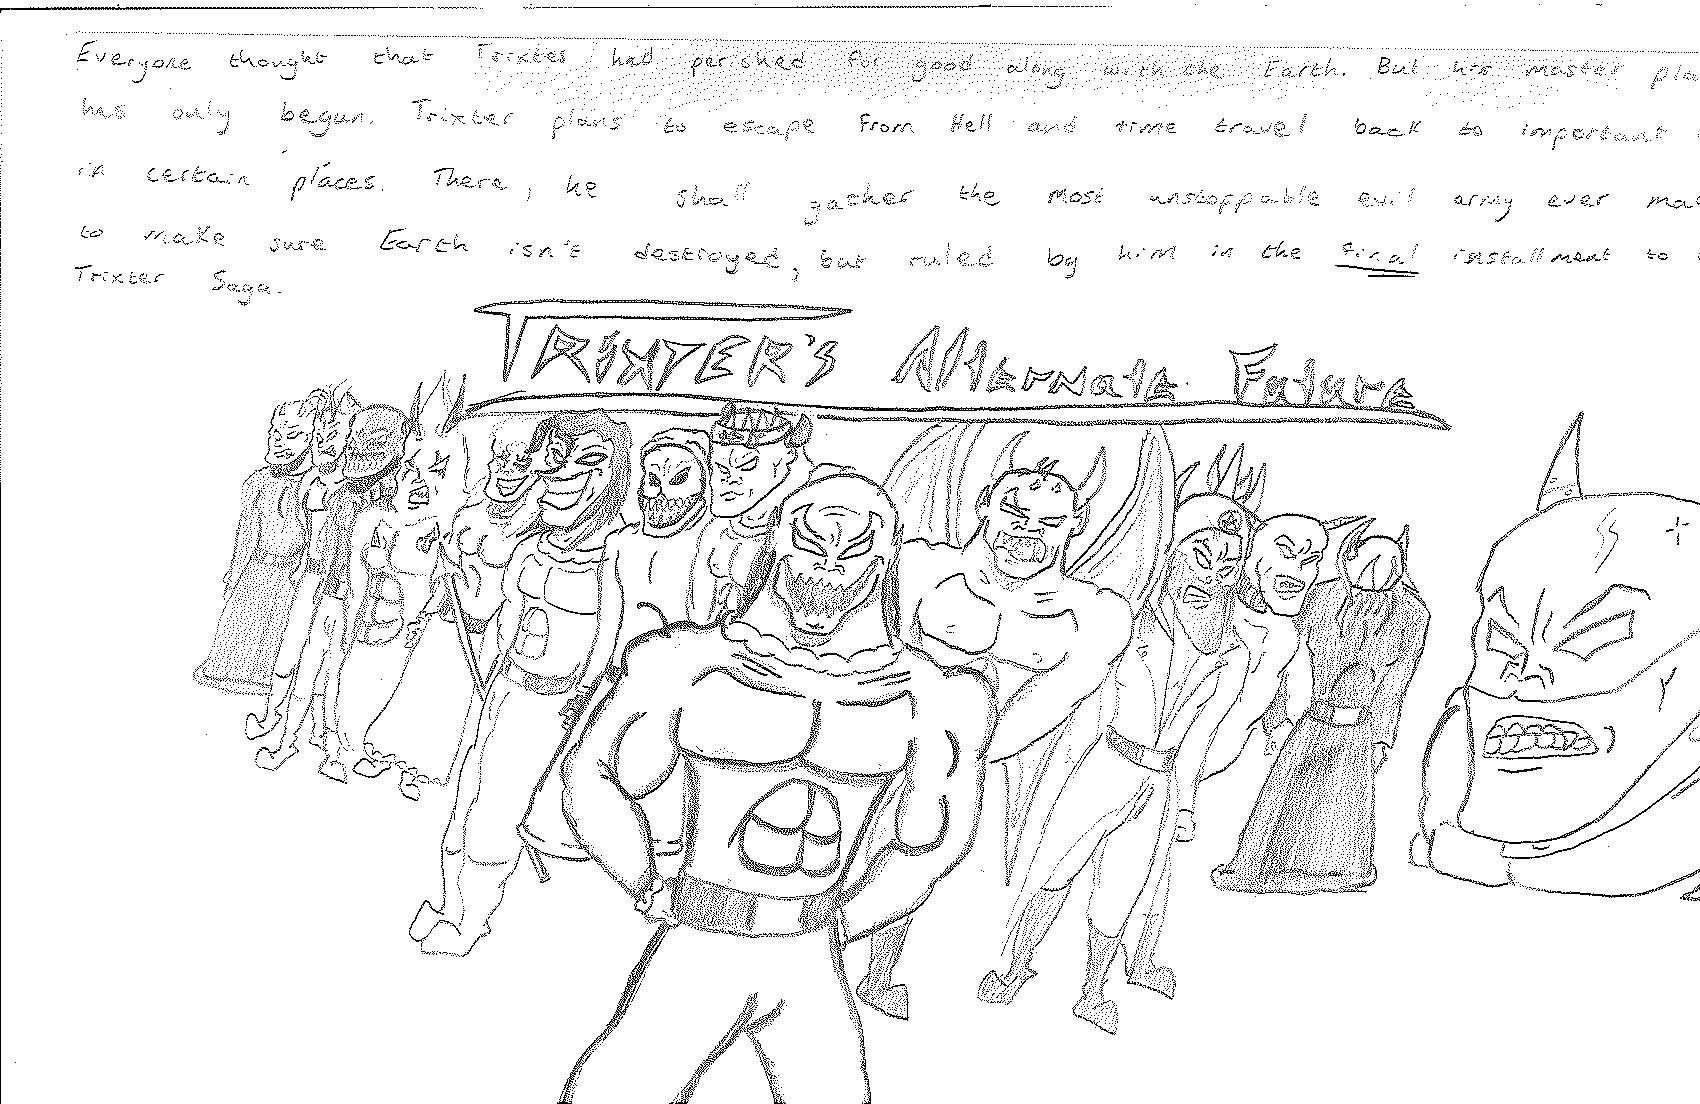 Everyone thought that Trixter had perished for good along with the Earth. But his master pla
has only begun. Trixter plans to escape from Hell and time travel back to important
in certain places. There, he shall gather the most unstoppable evil army ever ma
to make sure Earth isn't destroyed, but ruled by him in the final installment to
Trixter Saga.
TRIXTER'S Alternate Future